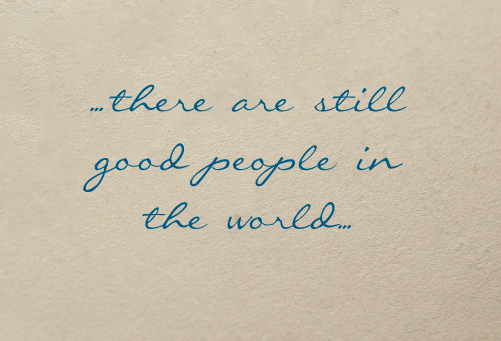 ...there are still
good people in
the world...